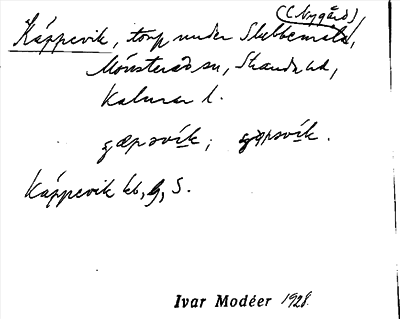 (Nygård)
Käppevik, torp under Slubbemåla,
Mönsterås sn, Stranda hd,
Kalmar l.
gæpəvík; gæpəvík.
Käppevik kb, G, S.
Ivar Modéer 1928.